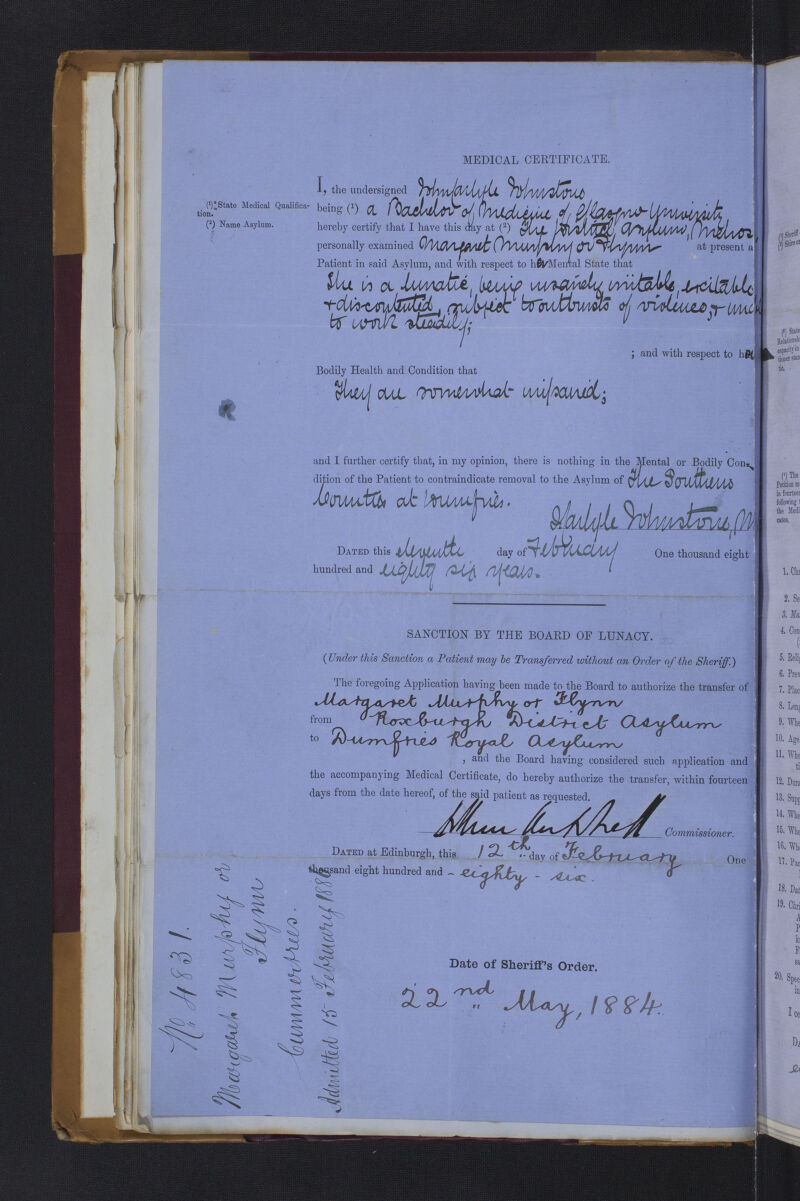 MEDICAL CERTIFICATE.
I, the undersigned John Carlyle Johnstone
(¹) State Medical Qualifica-
tion.
(²) Name Asylum.
being (¹) a Bachelor of Medicine of Glasgow University
hereby certify that I have this day at (²) The District Asylum, Melros
personally examined Margaret Murphy or Flynn at present a
Patient in said Asylum, and with respect to her Mental State that
She is a lunatic, being insanely irritable, excitable
+ discontented, subject to outbursts of violence, +
to work steadily;
; and with respect to her
Bodily Health and Condition that
They are somewhat impaired;
and I further certify that, in my opinion, there is nothing in the Mental or Bodily Con-
dition of the Patient to contraindicate removal to the Asylum of The Southern
Counties at Dumfries.
J Carlyle Johnstone, M
DATED this eleventh day of February One thousand eight
hundred and eighty six years.
SANCTION BY THE BOARD OF LUNACY.
(Under this Sanction a Patient may be Transferred without an Order of the Sheriff.)
The foregoing Application having been made to the Board to authorize the transfer of
Margaret Murphy or Flynn
from Roxburgh District Asylum
to Dumfries Royal Asylum
, and the Board having considered such application and
the accompanying Medical Certificate, do hereby authorize the transfer, within fourteen
days from the date hereof, of the said patient as requested.
Commissioner.
DATED at Edinburgh, this 12th day of February One
thousand eight hundred and - eighty - six.
Date of Sheriff's Order.
22nd May, 1884.
No 4831.
Margaret Murphy or
Flynn
Cummertrees.
Admitted 15 February 1886